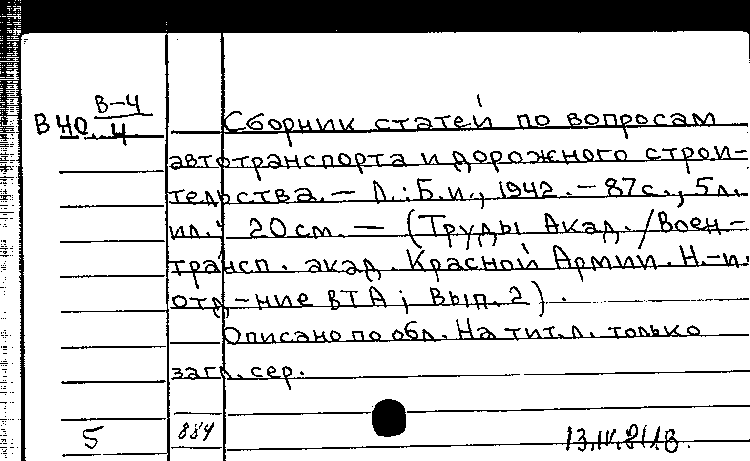 В-4
В 40 4
Сборник статей по вопросам
автотранспорта и дорожного строи-
тельства. — Л.: Б.и., 1942. — 87с., 5л.
ил.; 20 см. — (Труды Акад. / Воен-
трансп. акад. Красной Армии. Н.-и.
отд-ние ВТА; Вып. 2).
Описано по обл. На тит. л. только
загл. сер.
5
884